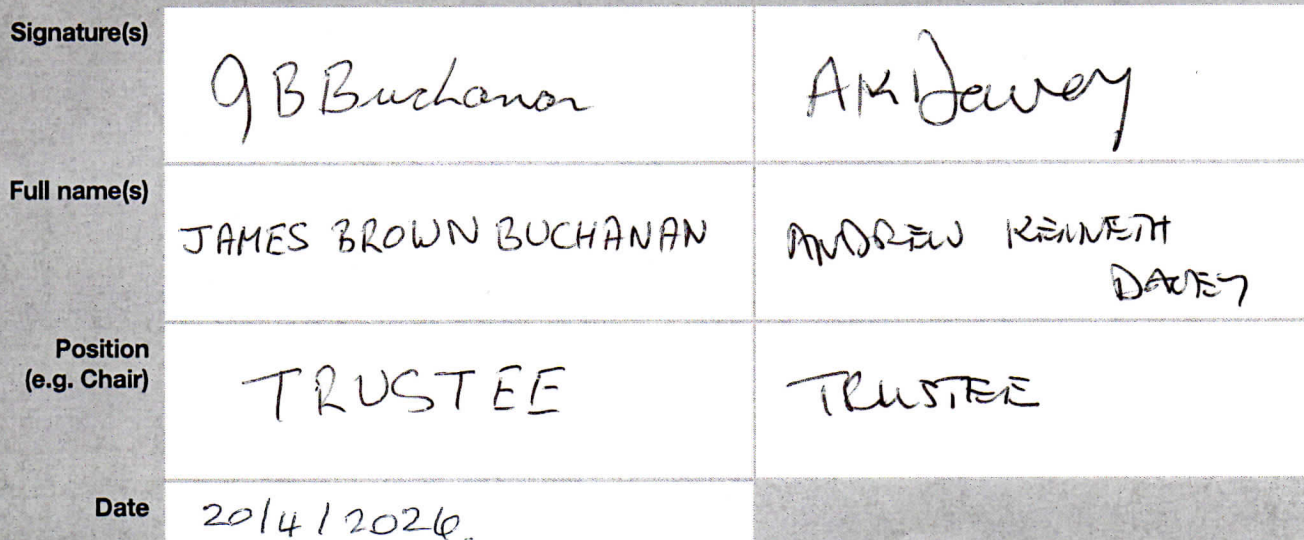 Signature(s)
J B Buchanan
A K Davey
Full name(s)
JAMES BROWN BUCHANAN
ANDREW KENNETH
DAVEY
Position
(e.g. Chair)
TRUSTEE
TRUSTEE
Date
20/4/2026.